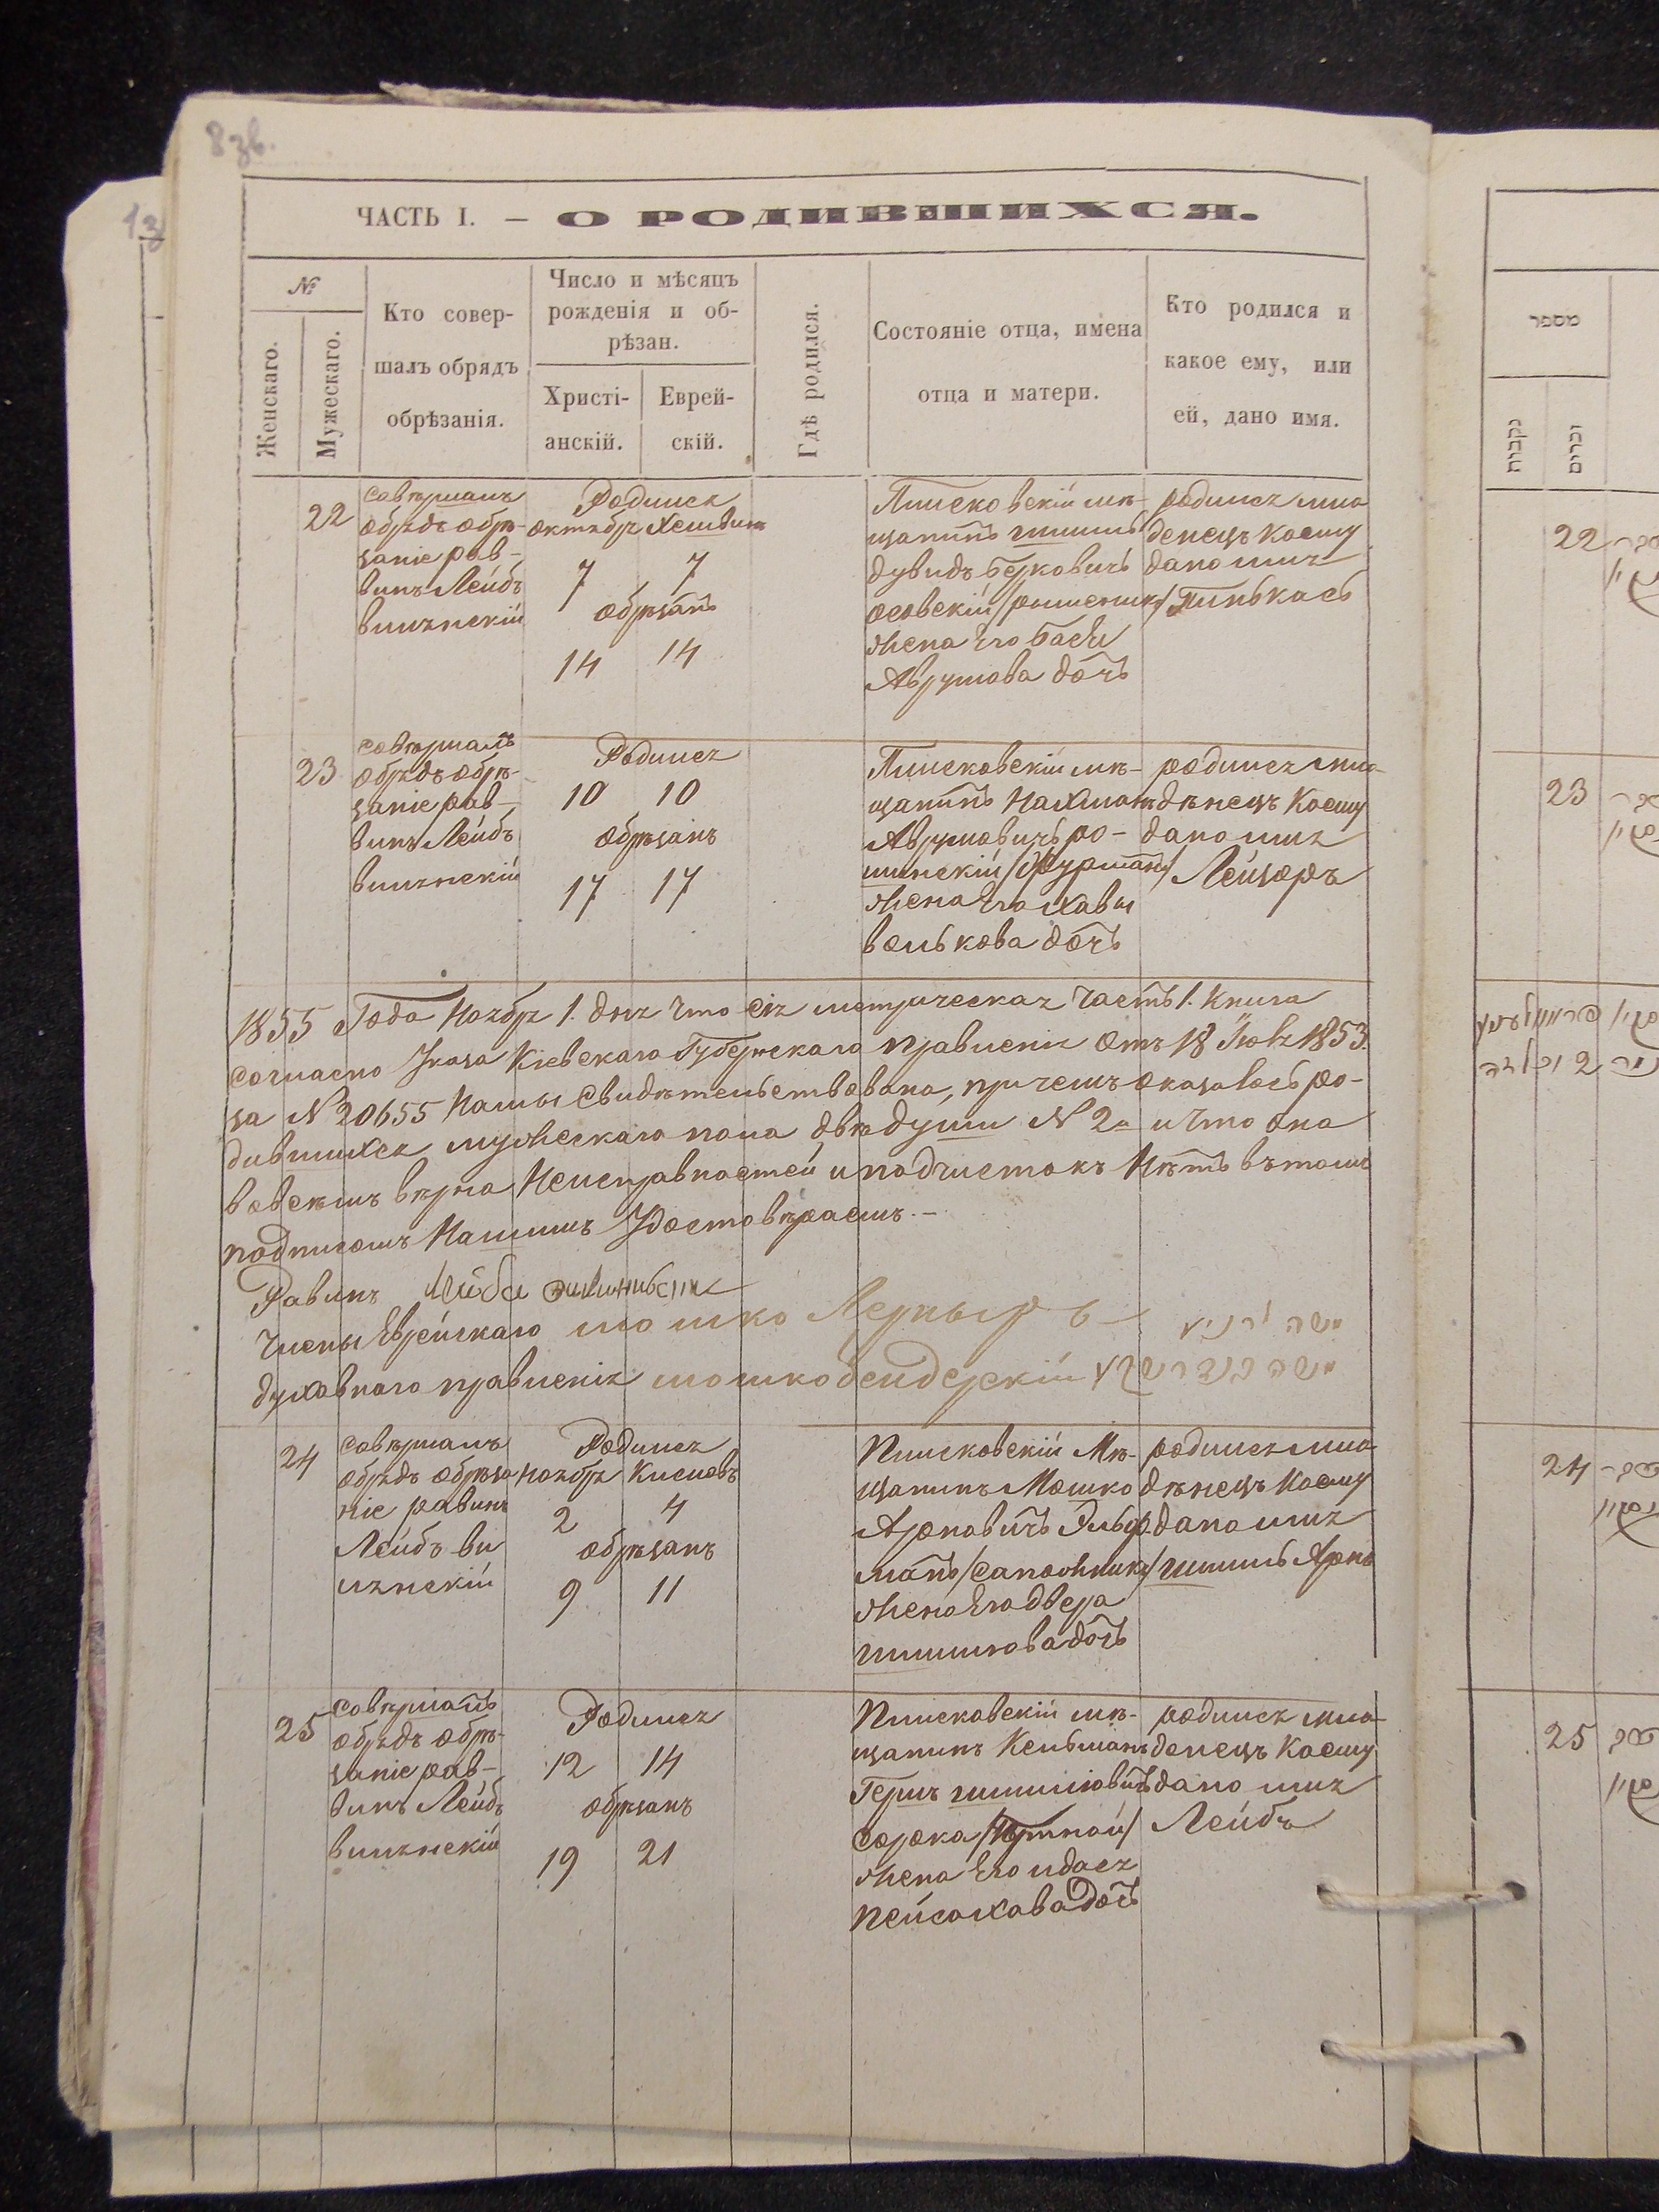 8 зв.
13
ЧАСТЬ I. — О РОДИВШИХСЯ.
№
Женскаго.
Мужескаго.
Кто совер-
шалъ обрядъ
обрѣзанія.
Число и мѣсяцъ
рожденія и об-
рѣзан.
Христі-
анскій.
Еврей-
скій.
Гдѣ родился.
Состояніе отца, имена
отца и матери.
Кто родился и
какое ему, или
ей, дано имя.
22
совѣршалъ
обрядъ обрѣ-
заніе рав-
винъ Лейбъ
вилянскій
Родился
октября Хешвана
7 7
обрѣзанъ
14 14
Писковскій мѣ-
щанинъ шимшъ
дувидъ берковичъ
осовскій
жена его Бася
Аврумова дочь
родился мла
денецъ коему
дано имя
Пинькасъ
23
совѣршалъ
обрядъ обрѣ-
заніе рав-
винъ Лейбъ
вилянскій
Родился
10 10
обрѣзанъ
17 17
Писковскій мѣ-
щанинъ Нахманъ
Аврумовичъ ро-
шинскій /Фурманъ/
жена его хавы
волькова дочь
родился мла-
дѣнецъ коему
дано имя
Лейзоръ
1855 Года Ноября 1. дня что сія метрическая часть 1. книга
согласно Указа Кіевскаго Губернскаго правленія отъ 18 Іюля 1853.
за N 20655 Нами свидѣтельствована, причемъ оказалось ро-
дившихся мужескаго пола двѣ души N 2. и что она
вовсѣмъ вѣрна Неисправностей и подчистокъ Нѣтъ въ томъ
подписомъ Нашимъ Удостовѣряемъ.-
Равинъ Лейба
Члены Еврейскаго мошко
духовнаго правленія мошко бендерскій
24
совѣршалъ
обрядъ обрѣза
ніе равинъ
Лейбъ ви
лянскій
Родился
ноября Кислевъ
2 4
обрѣзанъ
9 11
Писковскій Мѣ-
щанинъ Мошко
Ароновичъ Эльф
манъ /сапожникъ/
жена его двера
шимшова дочь
родился мла
дѣнецъ коему
дано имя
шимшъ Аронъ
25
совѣршалъ
обрядъ обрѣ-
заніе рав-
винъ Лейбъ
вилянскій
Родился
12 14
обрѣзанъ
19 21
Писковскій мѣ-
щанинъ Кельманъ
Гершъ шимшовичъ
сорока
жена его идася
пейсахова дочь
родился мла-
денецъ коему
дано имя
Лейбъ
מספר
נקבות
זכרים
22
23
24
25